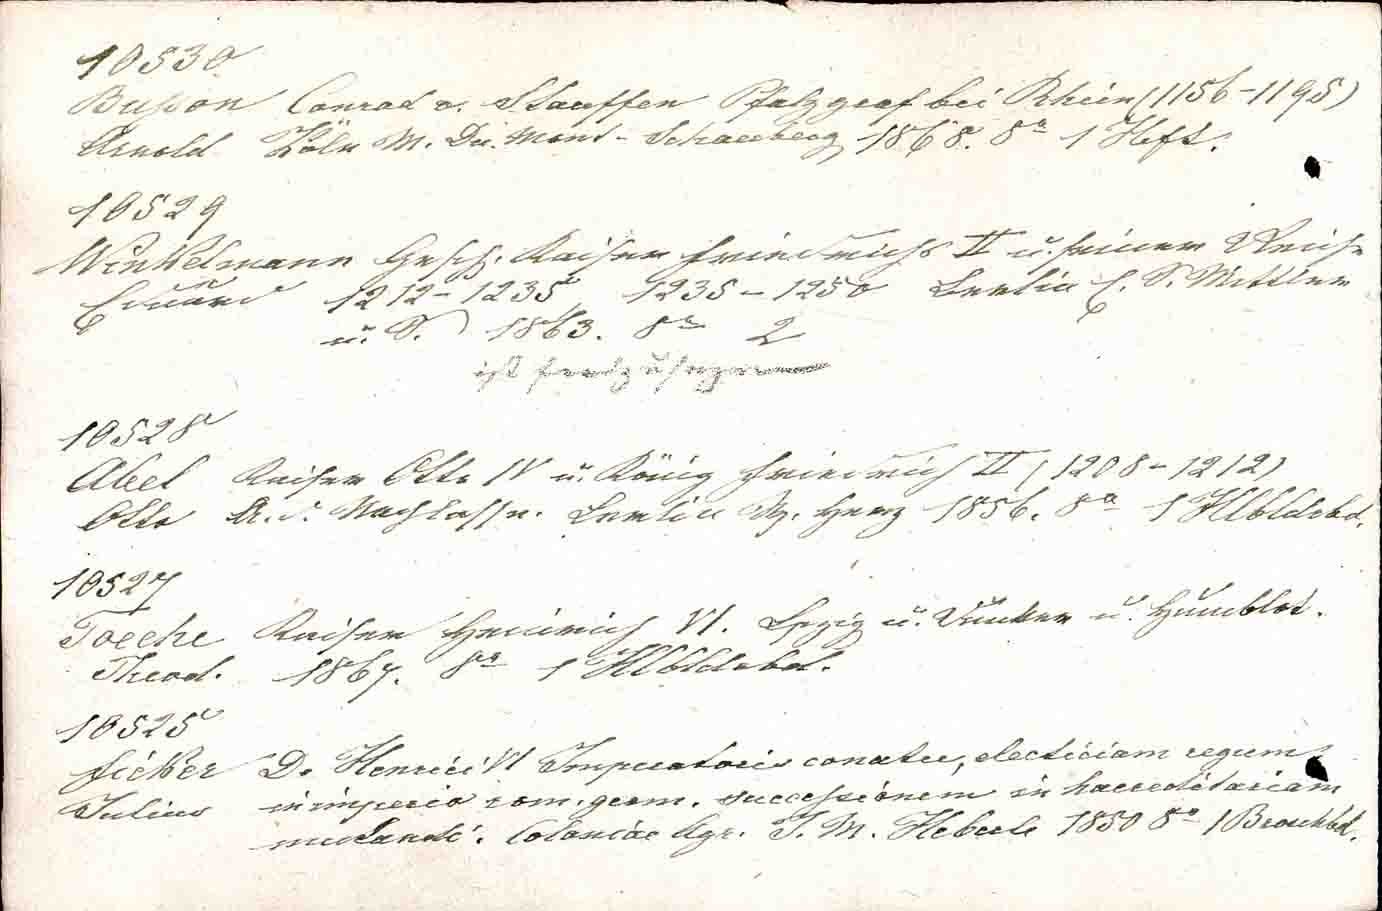 10530
Busson Conrad v. Stauffen Pfalzgraf bei Rhein (1156-1195)
Arnold Köln M. Du. Mont-Schauberg 1868. 8° 1 Heft.
10529
Winkelmann Gesch. Kaiser Friedrichs II u. seiner Reiche
Eduard 1212-1235, 1235-1250 Berlin E. S. Mittler
u. S. 1863. 8° 2
ist fortzusetzen
10528
Abel Kaiser Otto IV u. König Friedrich II (1208-1212)
Otto A. d. Nachlasse. Berlin W. Herz 1856. 8° 1 Hlbldrbd.
10527
Toeche Kaiser Heinrich VI. Lpzig u. Dunker u. Humblot.
Theod. 1867. 8° 1 Hlbldrbd.
10525
Ficker De Henrici VI Imperatoris conatu, electiciam regum
Julius in imperio rom. germ. successionem in haereditariam
mutandi. Coloniae Agr. J. M. Heberle 1850 8° 1 Broschbd.